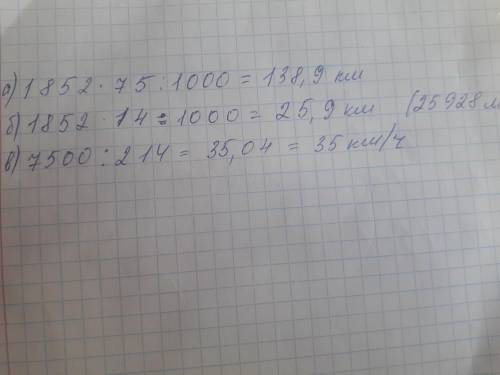 а) 1852 · 75 : 1000 = 138,9 км
б) 1852 · 14 : 1000 = 25,9 км (25928 м
в) 7500 : 214 = 35,04 = 35 км/ч